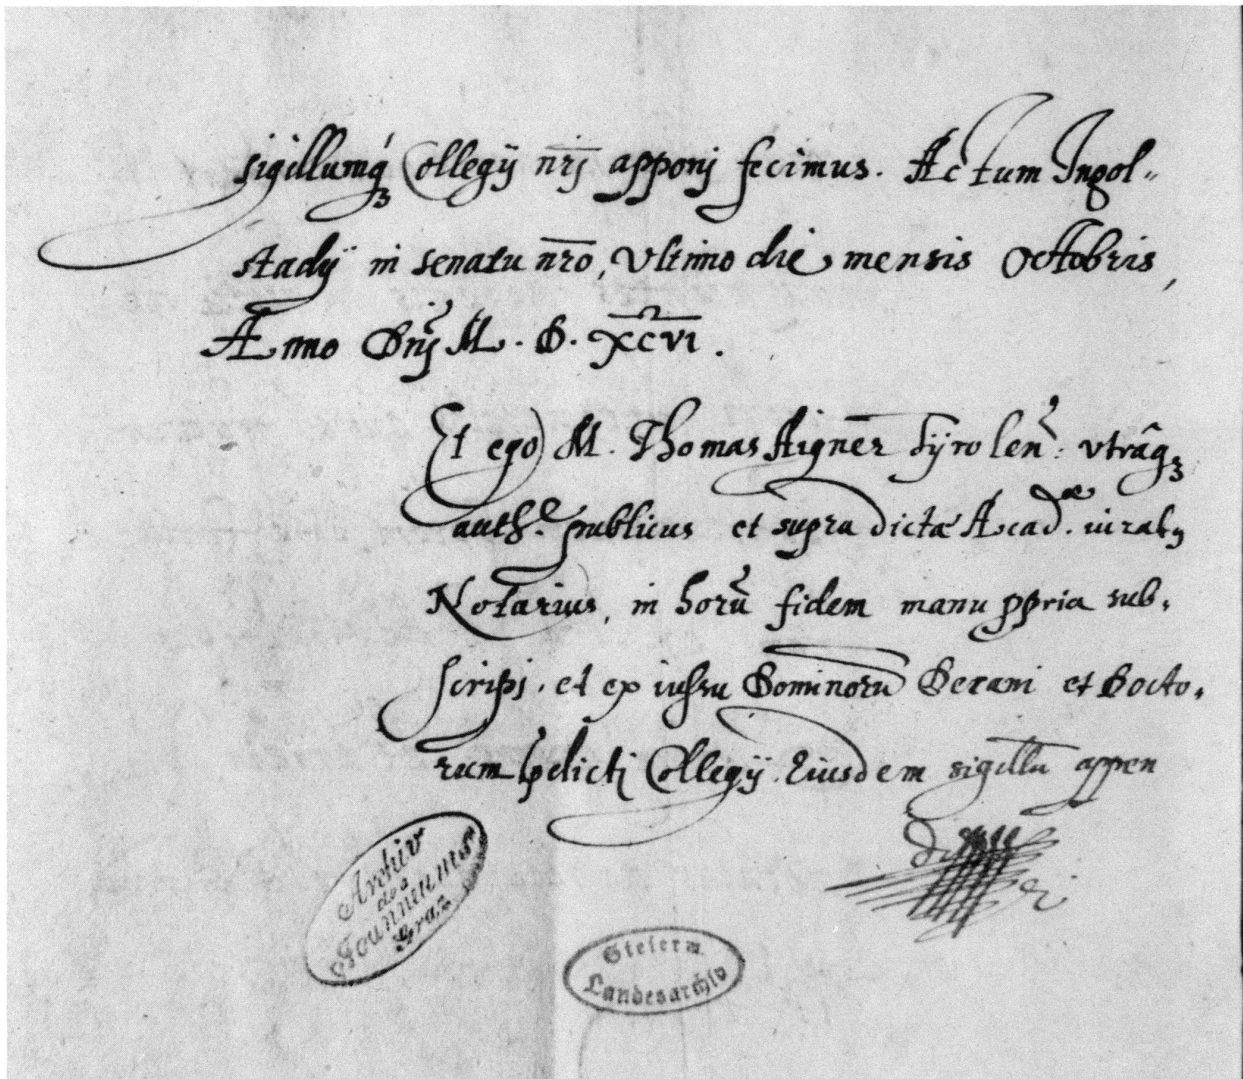 sigillumq́ꝫ Collegij nr̄j apponj fecimus. Actum Ingol-
stadij in senatu nr̄o, Vltimo die mensis Octobris,
Anno Dn̄j M. D. XCVI.
Et ego M. Thomas Aigner Tyrolen: vtrâqꝫ
auth.e publicus et supra dictæ Acadæ. iurat9
Notarius, in horū fidem manu ꝓpria sub-
scripsj, et ex iussu Dominorū Decani et Docto-
rum Collegij Eiusdem sigillū appen
di
Archiv
des
Joanneums
Graz
Steierm.
Landesarchiv